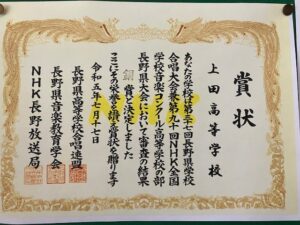 賞状
上田高等学校
あなたの学校は第三十七回長野県学校
合唱大会兼第九十回NHK全国
学校音楽コンクール高等学校の部
長野県大会において審査の結果
銅賞と決定しました
ここにその栄誉を讃え賞状を贈ります
令和五年七月十七日
長野県高等学校合唱連盟
長野県音楽教育学会
NHK長野放送局